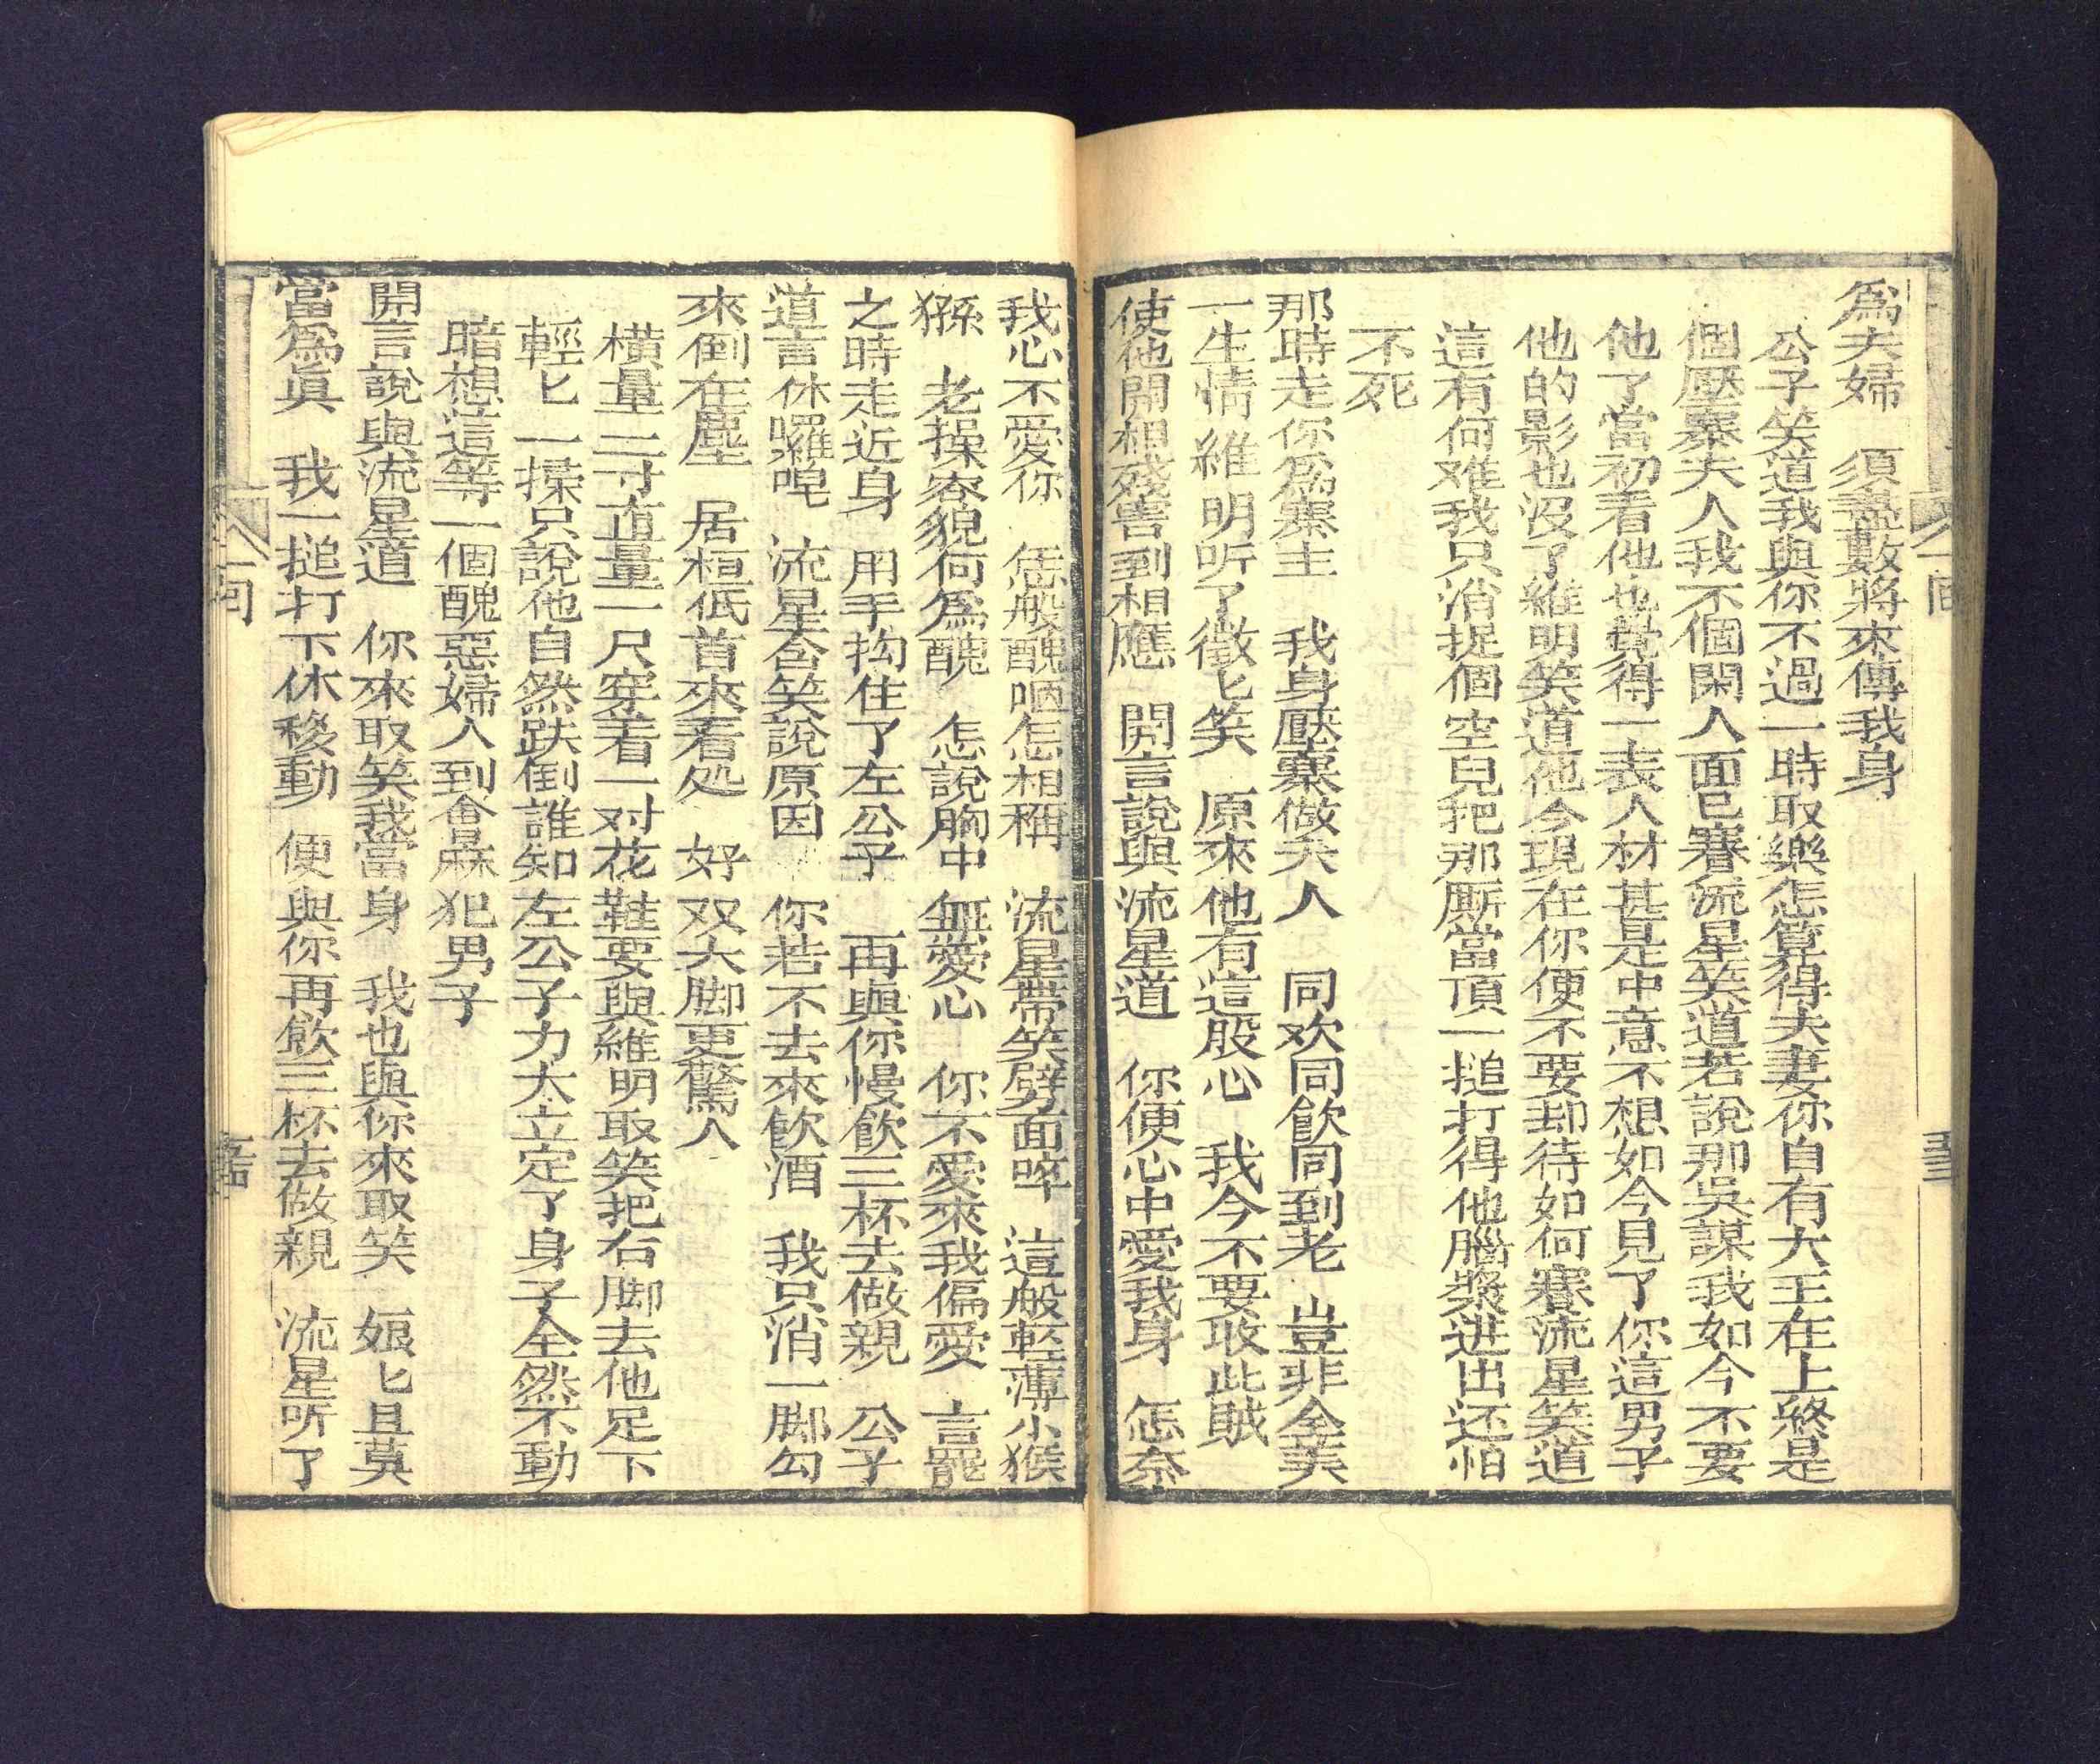 為夫婦　須盡數將來傳我身
公子笑道我與你不過一時取樂怎算得夫妻你自有大王在上終是
個壓寨夫人我不個閑人面已賽流星笑道若說那吳謀我如今不要
他了當初看他也覺得一表人材甚是中意不想如今見了你這男子
他的影也沒了維明笑道他今現在你便不要却待如何賽流星笑道
這有何难我只消捉個空兒把那厮當頂一搥打得他腦漿迸出还怕
不死
那時走你為寨主　我身壓寨做夫人　同欢同飲同到老　豈非全美
一生情　維明听了微匕笑　原來他有這股心　我今不要敢此賊
使他開相殘害到相應　開言說與流星道　你便心中愛我身　怎奈
我心不愛你　恁般醜哂怎相稱　流星帶笑劈面啐　這般輕薄小猴
猻　老操容貌何為醜　怎說胸中無愛心　你不愛來我偏愛　言罷
之時走近身　用手抅住了左公子　再與你慢飲三杯去做親　公子
道言休囉唣　流星含笑說原因　你若不去來飲酒　我只消一脚勾
來倒在塵　居桓低首來看処　好双大脚更驚人
橫量二寸直量一尺穿着一对花鞋要與維明取笑把右脚去他足下
輕匕一揉只說他自然跌倒誰知左公子力大立定了身子全然不動
暗想這等一個醜惡婦人到會麻犯男子
開言說與流星道　你來取笑我當身　我也與你來取笑　娘匕且莫
當為真　我一搥打下休移動　便與你再飲三杯去做親　流星听了